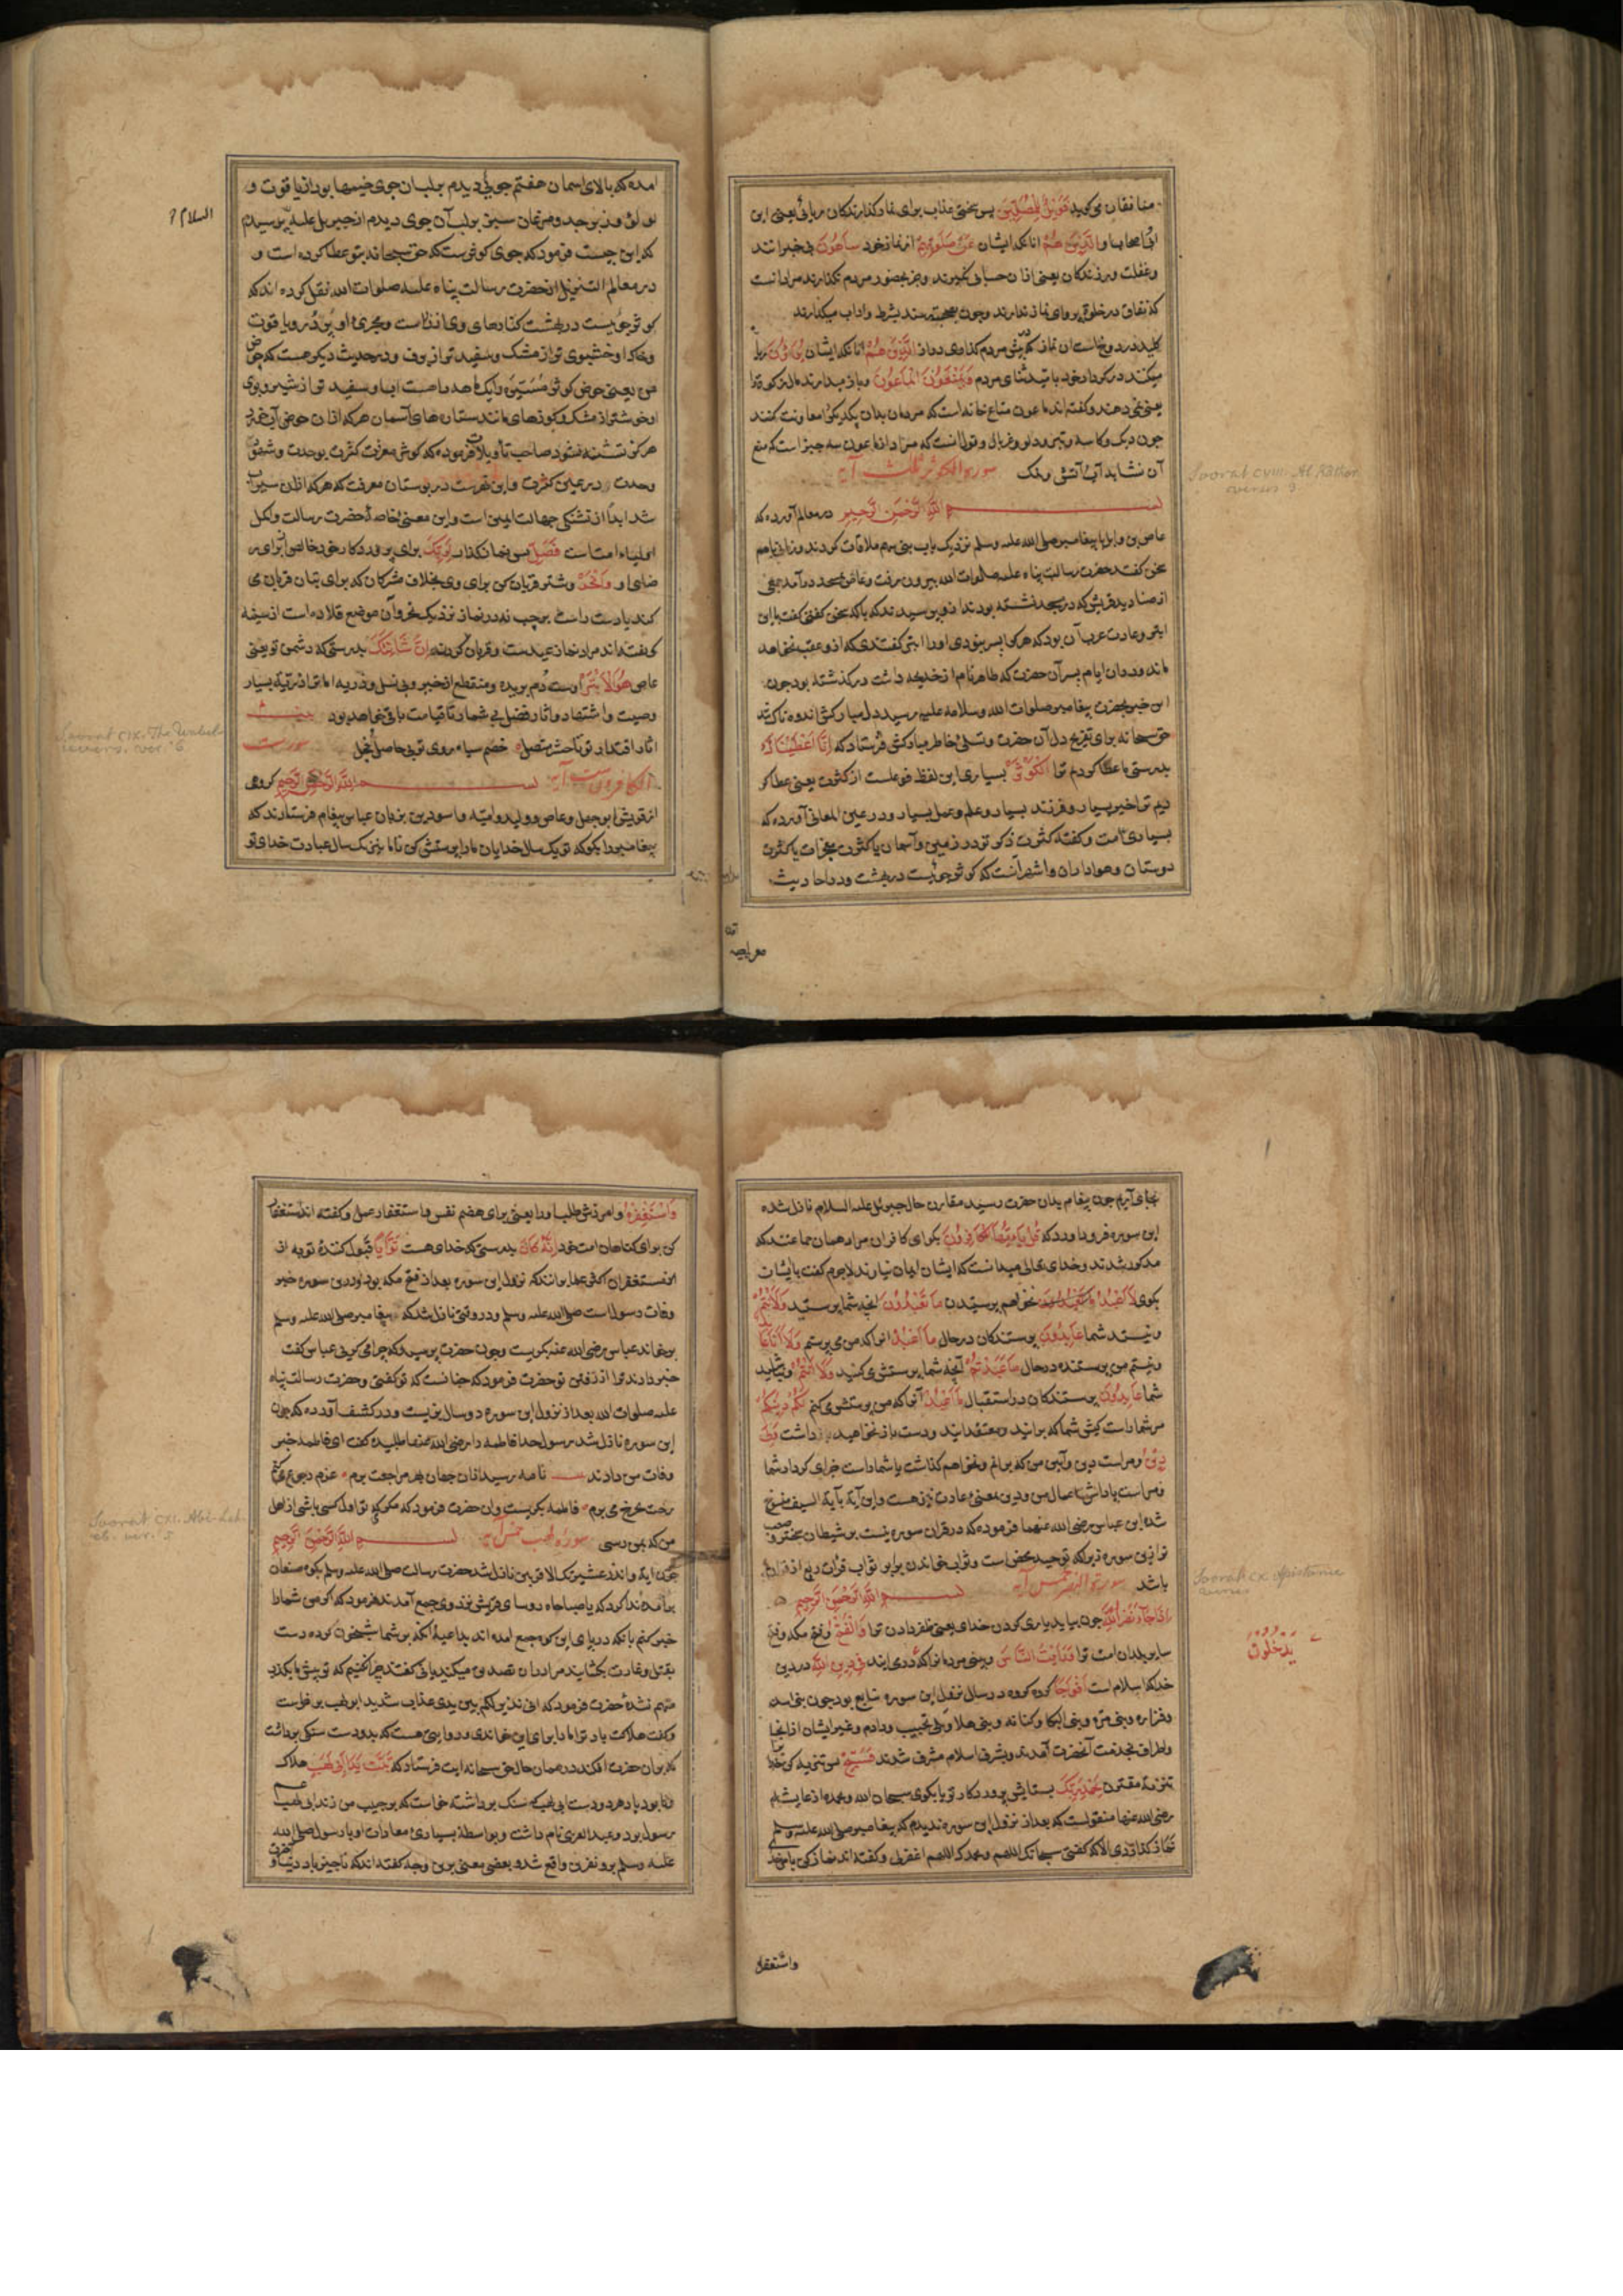 منافقان می کوید فَوَيْلٌ لِلْمُصَلِّينَ پس سختی عذاب برای نماز کذارندکان ریائی یعنی ابن
وَالَّذِينَ هُمْ انانکه ایشان عَنْ صَلَوتِهِمْ از نماز خود سَاهُونَ بی خبرانند
وغفلت ورزندکان یعنی از ان حسابی نکیرند وجز بحضور مردم نکذارند مراد انست
که نفاق در خلوة پروای نماز ندارند وچون بصحبت رسند بشرط واداب میکذارند
کلید در دوزخ است ان نماز که در پیش مردم کذاری دراز الَّذِينَ هُمْ انانکه ایشان يُرَاؤُنَ ریا
میکنند در کردار خود بامید ثنای مردم وَيَمْنَعُونَ الْمَاعُونَ وباز میدارند مال زکوة را
یعنی نمی دهند وکفته اند ماعون متاع خانه است که مردمان بدان یکدیکر معاونت کنند
چون دیک وکاسه وتبر ودلو وغربال
آن نشاید آب وآتش ونمک سورة الكوثر ثلث آية
Soorat CVIII. Al Kāthar
verses 3
بسم الله الرحمن الرحيم در معالم آورده که
عاص بن وایل با پیغامبر صلی الله علیه وسلم نزدیک باب بنی سهم ملاقات کردند
سخن کفتند حضرت رسالت پناه علیه صلوات الله بیرون رفت وعاص بمسجد درآمد جمعی
از صنادید قریش که در مسجد نشسته بودند از وی پرسیدند که با که سخن کفتی کفت با این
ابتر وعادت عرب آن بود که هر کرا پسر نبودی او را ابتر کفتندی که از و عقب نخواهد
ماند ودر ان ایام پسر آن حضرت که طاهر نام از خدیجه داشت درکذشته بود چون
این خبر بحضرت پیغامبر صلوات الله وسلامه علیه رسید دل مبارکش اندوهناک شد
حق سبحانه برای تفریح دل آن حضرت وتسلی خاطر مبارکش فرستاد که اِنَّا اَعْطَيْنَاكَ
بدرستی ما عطا کردیم ترا الْكَوْثَرَ بسیاری این لفظ فوعلست از کثرت یعنی عطا کر
دیم ترا خیر بسیار وفرزند بسیار وعلم وعمل بسیار ودر عین المعانی آورده که
بسیاری امت وکفته کثرت ذکر تو در زمین وآسمان یا کثرت معجزات یا کثرت
دوستان وهواداران واشهر آنست که کوثر جوئیست در بهشت ودر احادیث
امده که بالای اسمان هفتم جوئی دیدم بر لب ان جوی خیمها بود از یاقوت و
لولؤ وزبرجد ومرغان سبز بر لب آن جوی دیدم از جبریل علیه پرسیدم
السلام
که این چیست فرمود که جوی کوثرست که حق سبحانه بتو عطا کرده است و
در معالم التنزیل از حضرت رسالت پناه علیه صلوات الله نقل کرده اند که
کوثر جوئیست در بهشت کنارهای وی از زر است ومجری او پر در ویاقوت
وخاک او خشبوی تر از مشک وسفید تر از برف ودر حدیث دیکر هست که حوض
من یعنی حوض کوثر مسیره یک ماهه راهست اب او سفید تر از شیر وبوی
او خوشتر از مشک وکوزهای مانند ستارهای آسمان هر که از ان حوض آب خورد
هرکز تشنه نشود صاحب تاویلات فرموده که کوثر معرفت کثرت بوحدت وشهود
وحدت در عین کثرت واین نهریست در بوستان معرفت که هر که از ان سیراب
شد ابدا از تشنکی جهالت ایمن است واین معنی خاصهٔ حضرت رسالت وکمل
اولیاء امت است فَصَلِّ پس نماز کذار لِرَبِّكَ برای پروردکار خود خالص برای
رضای او وَانْحَرْ وشتر قربان کن برای وی بخلاف مشرکان که برای بتان قربان می
کنند یا دست راست بر چپ نه در نماز نزدیک نحر وآن موضع قلاده است از سینه
کفته اند مراد نماز عیدست وقربان کردن اِنَّ شَانِئَكَ بدرستی که دشمن تو یعنی
عاص هُوَ الْاَبْتَرُ اوست دم بریده ومنقطع از خیر وبی نسل وذریه اما ترا ذریه بسیار
وصیت واشتهار واثار فضل بی شمار تا قیامت باقی خواهد بود بیت
اثار اقتدار تو تا حشر متصل خصم سیاه روی تو بی حاصل خجل سورت
Soorat CIX. The Unbel-
ievers. ver. 6
الكافرون ست آية بسم الله الرحمن الرحيم کروهی
از قریش ابو جهل وعاص وولید وامیه واسود بن بزبان عباس پیغام فرستادند که
پیغامبر را بکو که تو یک سال خدایان ما را پرستش کن تا ما نیز یک سال عبادت خدای تو
بجای آریم چون پیغام بدان حضرت رسید مقارن حال جبرئیل علیه السلام نازل شده
این سوره فرود آورد که قُلْ يَا اَيُّهَا الْكَافِرُونَ بکو ای کافران مراد همان جماعتند که
مذکور شدند وخدای تعالی میدانست که ایشان ایمان نیارند لاجرم کفت با ایشان
بکوی لَا اَعْبُدُ نخواهم پرستیدن مَا تَعْبُدُونَ انچه شما پرستید وَلَا اَنْتُمْ
ونیستید شما عَابِدُونَ پرستندکان در حال مَا اَعْبُدُ انرا که من می پرستم وَلَا اَنَا عَا
بِدٌ
ونیستم من پرستنده در حال مَا عَبَدْتُمْ آنچه شما پرستش می کنید وَلَا اَنْتُمْ ونباشید
شما عَابِدُونَ پرستندکان در استقبال مَا اَعْبُدُ آنرا که من پرستش می کنم لَكُمْ دِينُكُمْ
مر شما راست کیش شما که برانید ومعتقدانید ودست باز نخواهید داشت وَلِيَ
دِينِ ومراست دین وآیین من که برانم ونخواهم کذاشت یا شما راست جزای کردار شما
ومراست پاداش اعمال من ودین بمعنی عادت نیز هست واین آیة بآیة السیف منسوخ
شد ابن عباس رضی الله عنهما فرموده که در قران سوره نیست بر شیطان سختر
تر ازین سوره زیرا که توحید محض است وثواب خواندن برابر ثواب ربع از قران
باشد سورة النصر خمس آية
Soorat CX. Assistance
verses
بسم الله الرحمن الرحيم
اِذَا جَآءَ نَصْرُ اللّٰهِ چون بیاید یاری کردن خدای یعنی ظفر دادن ترا وَالْفَتْحُ وفتح مکه وفتح
سایر بلدان امت ترا وَرَاَيْتَ النَّاسَ وبینی مردمانرا که در می ایند فِى دِينِ اللّٰهِ در دین
يَدْخُلُونَ
خدا که اسلام است اَفْوَاجًا کروه کروه در سال نزول این سوره تتابع بود چون بنی اسد
وفزاره وبنی مره وبنی البکا وکنانه وبنی هلال
واطراف بخدمت آنحضرت آمدند وبشرف اسلام مشرف شدند فَسَبِّحْ پس تنزیه کن خدا
تنزیه مقترن بِحَمْدِ رَبِّكَ بستایش پروردکار تو یا بکوی سبحان الله وبحمده از عایشه
رضی الله عنها منقولست که بعد از نزول این سوره ندیدم که پیغامبر صلی الله علیه وسلم
نماز کذاردی الا که کفتی سبحانک اللهم وبحمدک اللهم اغفر لی وکفته اند نماز کن بامر خدا
واستغفره
وَاسْتَغْفِرْهُ وامرزش طلب او را یعنی برای هضم نفس واستقصار عمل وکفته اند استغفار
کن برای کناهان امت خود اِنَّهُ كَانَ بدرستی که خدای هست تَوَّابًا قبول کنندهٔ توبه از
مستغفران اکثر علما برانند که نزول این سوره بعد از فتح مکه بود ودرین سوره خبر
وفات رسول است صلی الله علیه وسلم ودر وقتی نازل شد که پیغامبر صلی الله علیه وسلم
بخواند عباس رضی الله عنه بکریست وچون حضرت پرسید که چرا می کریی عباس کفت
خبر دادند ترا از رفتن تو حضرت فرمود که چنانست که تو کفتی وحضرت رسالت پناه
علیه صلوات الله بعد از نزول این سوره دو سال بزیست ودر کشف آورده که چون
این سوره نازل شد رسول خدا فاطمه را رضی الله عنها طلبیده کفت ای فاطمه خبر
وفات من دادند نامه رسید از ان جهان بهر مراجعت برم عزم رجوع می کنم
رخت بچرخ می برم فاطمه بکریست وان حضرت فرمود که مکری تو اول کسی باشی از اهل
Soorat CXI. Abi-Lah-
ab. ver. 5
من که بمن رسی سورة لهب خمس آية بسم الله الرحمن الرحيم
چون ایة وانذر عشیرتک الاقربین نازل شد حضرت رسالت صلی الله علیه وسلم بکوه صفا
برآمد وندا کرد که یا صباحاه روسای قریش نزد وی جمع آمدند فرمود که اکر من شما را
خبر کنم بانکه در پای این کوه جمع امده اند بداعیهٔ آنکه بر شما شبیخون کرده دست
بقتل وغارت بکشایند مرا در ان تصدیق میکنید یا نی کفتند چرا نکنیم که تو پیش ما بکذب
متهم نشدهٔ حضرت فرمود که انی نذیر لکم بین یدی عذاب شدید ابو لهب بر خواست
وکفت هلاکت باد ترا ما را برای این خواندی ودر روایتی هست که بدو دست سنکی برداشت
که بران حضرت افکند در همان حال حق سبحانه ایت فرستاد که تَبَّتْ يَدَا اَبِى لَهَبٍ هلاک
ونابود باد هر دو دست ابی لهب که سنک برداشته خاست که بر حبیب من زند ابی لهب
عم
رسول بود وعبد العزی نام داشت وبواسطهٔ بسیاری معادات او با رسول صلی الله
علیه وسلم برو نفرین واقع شد وبعضی معنی برین وجه کفته اند که ناچیز باد دنیا و